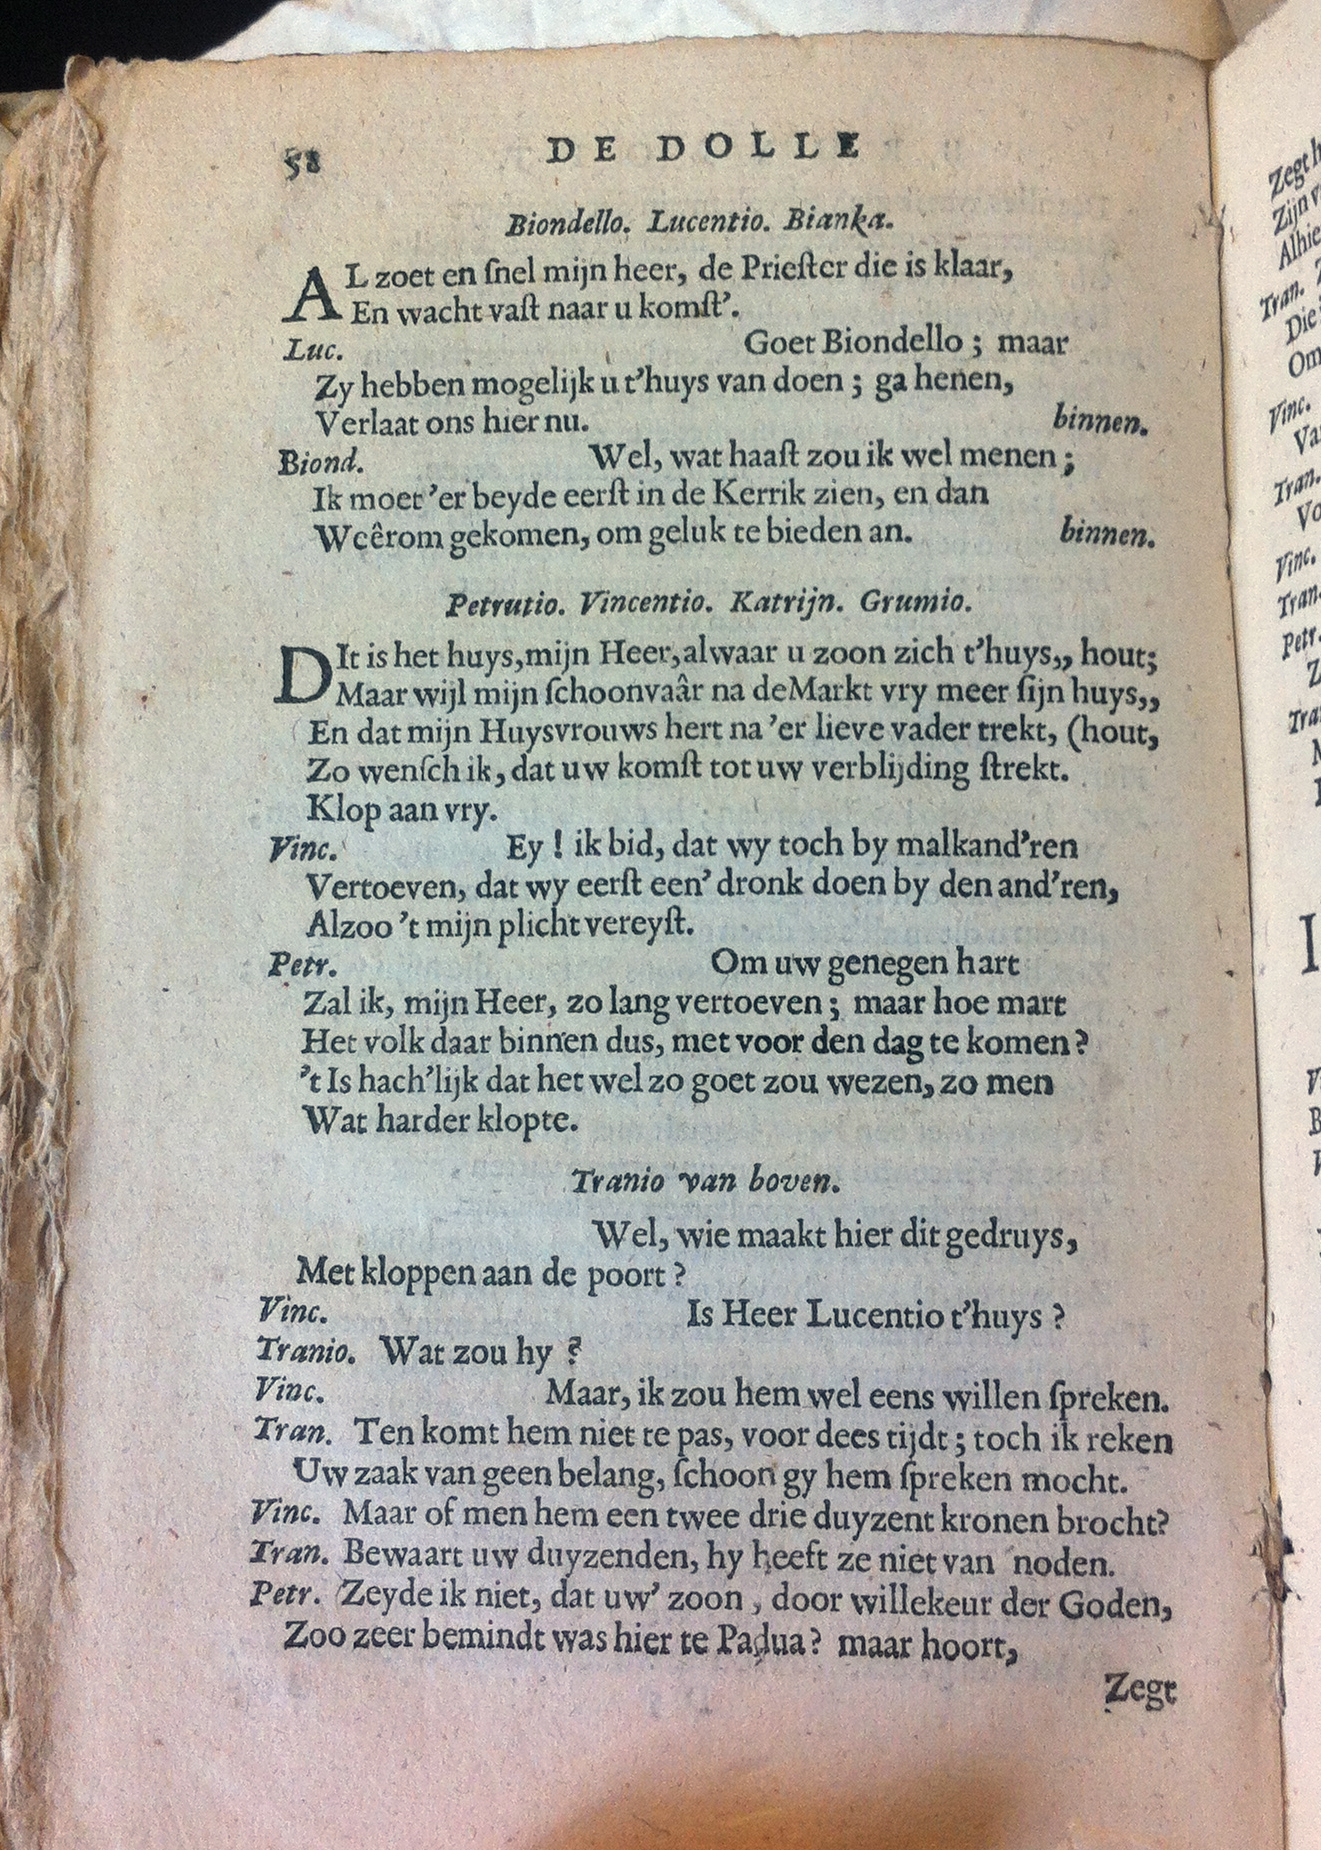 58 DE DOLLE
Biondello. Lucentio. Bianka.
AL zoet en ſnel mijn heer, de Prieſter die is klaar,
En wacht vaſt naar u komſt'.
Luc. Goet Biondello ; maar
Zy hebben mogelijk u t'huys van doen ; ga henen,
Verlaat ons hier nu. binnen.
Biond. Wel, wat haaſt zou ik wel menen ;
Ik moet 'er beyde eerſt in de Kerrik zien, en dan
Weêrom gekomen, om geluk te bieden an. binnen.
Petrutio. Vincentio. Katrijn. Grumio.
DIt is het huys, mijn Heer, alwaar u zoon zich t'huys,, hout;
Maar wijl mijn ſchoonvaâr na de Markt vry meer ſijn huys,,
En dat mijn Huysvrouws hert na 'er lieve vader trekt, (hout,
Zo wenſch ik, dat uw komſt tot uw verblijding ſtrekt.
Klop aan vry.
Vinc. Ey ! ik bid, dat wy toch by malkand'ren
Vertoeven, dat wy eerſt een' dronk doen by den and'ren,
Alzoo 't mijn plicht vereyſt.
Petr. Om uw genegen hart
Zal ik, mijn Heer, zo lang vertoeven ; maar hoe mart
Het volk daar binnen dus, met voor den dag te komen?
't Is hach'lijk dat het wel zo goet zou wezen, zo men
Wat harder klopte.
Tranio van boven.
Wel, wie maakt hier dit gedruys,
Met kloppen aan de poort ?
Vinc. Is Heer Lucentio t'huys ?
Tranio. Wat zou hy ?
Vinc. Maar, ik zou hem wel eens willen ſpreken.
Tran. Ten komt hem niet te pas, voor dees tijdt ; toch ik reken
Uw zaak van geen belang, ſchoon gy hem ſpreken mocht.
Vinc. Maar of men hem een twee drie duyzent kronen brocht?
Tran. Bewaart uw duyzenden, hy heeft ze niet van noden.
Petr. Zeyde ik niet, dat uw' zoon, door willekeur der Goden,
Zoo zeer bemindt was hier te Padua? maar hoort,
Zegt
Zegt
Zijn
Alhie
Tran.
Die
Om
Vinc.
Tran.
Vinc.
Tran.
Petr.